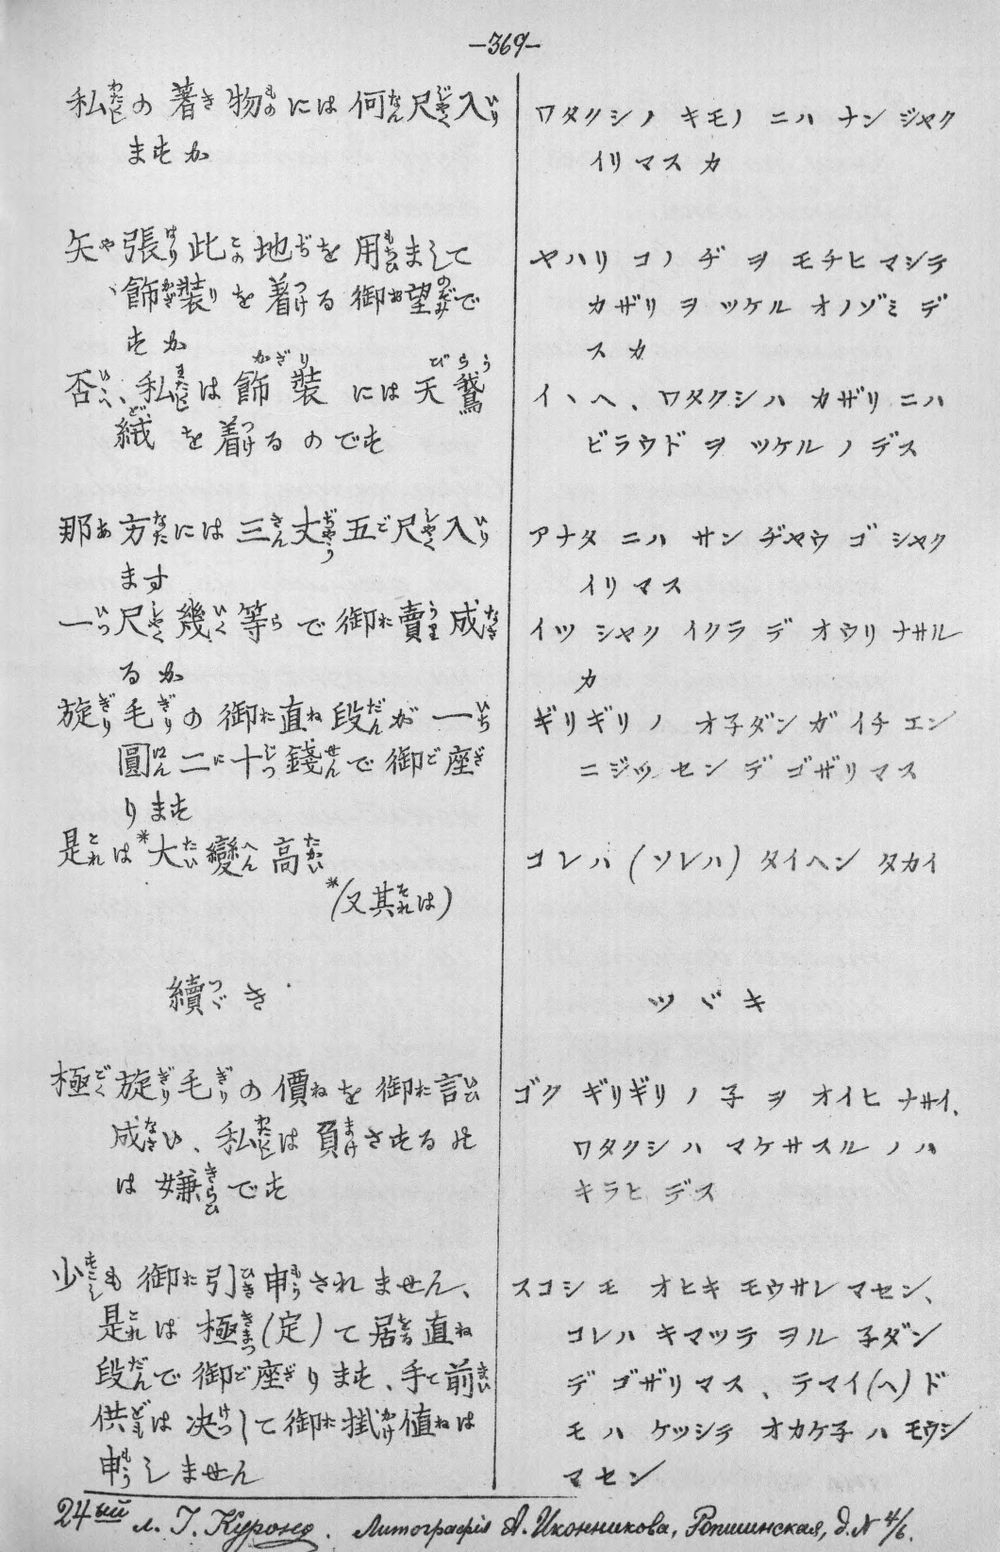 —369—
私の着き物には何尺入り
ますか
矢や張り此の地ぢを用ひまして
飾裝りを着ける御お望みで
すか
否いへ、私は飾裝には天鵞
絨を着けるのです
那あ方には三丈五尺入り
ます
一尺幾等で御お賣り成さ
るか
旋毛の御お直ね段が一
圓二十錢で御ご座ざ
ります
是れは*大變高い
*(又其れは)
續づき
極旋毛の價ねを御お言ひ
成さい、私は負けさするの
は嫌ひです
少しも御お引き申されません、
是れは極(定)て居る直ね
段で御ご座ざります、手て前
供は决して御お掛け値ねは
申しません
ワタクシノ キモノ ニハ ナン ジャク
イリ マス カ
ヤハリ コノ ヂ ヲ モチヒ マシテ
カザリ ヲ ツケル オノゾミ デ
ス カ
イヽヘ、ワタクシハ カザリ ニハ
ビラウド ヲ ツケル ノ デス
アナタ ニハ サン ヂヤウ ゴ シャク
イリ マス
イツ シャク イクラ デ オウリ ナサル
カ
ギリギリ ノ オ子ダン ガ イチ エン
ニジツ セン デ ゴザリマス
コレハ (ソレハ) タイヘン タカイ
ツヾキ
ゴク ギリギリ ノ 子 ヲ オイヒ ナサイ、
ワタクシハ マケサスル ノハ
キラヒ デス
スコシ モ オヒキ モウサレ マセン、
コレハ キマツテ ヲル 子ダン
デ ゴザリマス、テマイ(ヘ)ド
モ ハ ケッシテ オカケ子 ハ モウシ
マセン
24ый л. Г. Куроно. Литографія А. Иконникова, Ропшинская, д. № 4/6.